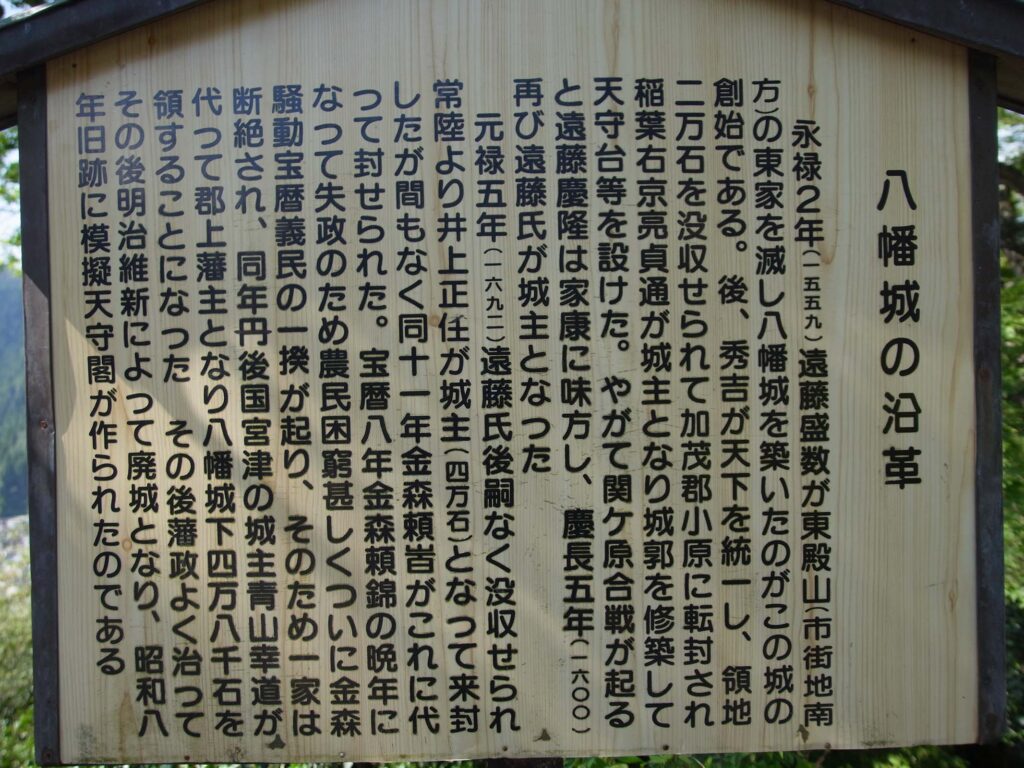 八幡城の沿革
永禄2年(一五五九)遠藤盛数が東殿山(市街地南
方)の東家を滅し八幡城を築いたのがこの城の
創始である。後、秀吉が天下を統一し、領地
二万石を没収せられて加茂郡小原に転封され
稲葉右京亮貞通が城主となり城郭を修築して
天守台等を設けた。やがて関ケ原合戦が起る
と遠藤慶隆は家康に味方し、慶長五年(一六〇〇)
再び遠藤氏が城主となった
元禄五年(一六九二)遠藤氏後嗣なく没収せられ
常陸より井上正任が城主(四万石)となって来封
したが間もなく同十一年金森頼旹がこれに代
って封せられた。宝暦八年金森頼錦の晩年に
なって失政のため農民困窮甚しくついに金森
騒動宝暦義民の一揆が起り、そのため一家は
断絶され、同年丹後国宮津の城主青山幸道が
代って郡上藩主となり八幡城下四万八千石を
領することになった その後藩政よく治って
その後明治維新によって廃城となり、昭和八
年旧跡に模擬天守閣が作られたのである